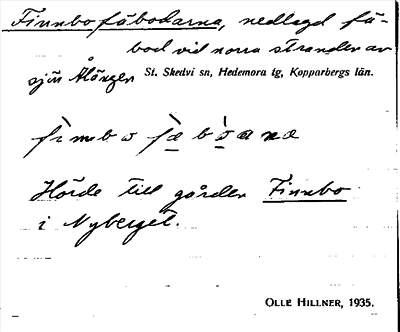 Finnbo fäbodarna, nedlagd fä-
bod vid norra stranden av
sjön Ålången St. Skedvi sn, Hedemora tg, Kopparbergs län.
Hörde till gården Finnbo
i Nyberget.
OLLE HILLNER, 1935.